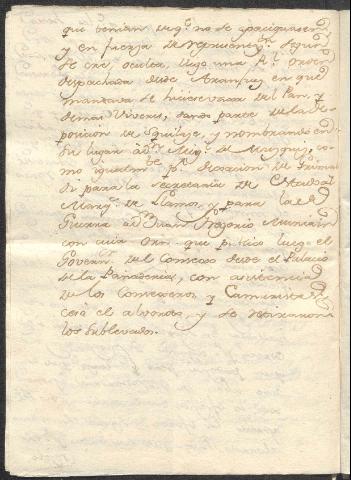 que tenian de qe. no se apaciguasen
y en fuerza de representon. segun
se cree, oculta, llego una Rl. orden
despachada desde Aranjuez en que
mandava se hiciese vaxa del Pan, y
demas Viveres, dando parte de la de
posicion de Squilaze, y nombrando en
su lugar a Dn. Migl. de Muzquiz, co
mo igualmte. pr. de Grima
di para la Secretaría de Estado al
Marqs. de Llanos, y para la de
Guerra a Dn. Juan Gregorio Muniain
con cuia orn. que publico luego el
Governr. del Consejo desde el Palacio
de la Panaderia, con asistencia
de los Consexeros y Camaristas
cesó el alboroto, y se retiraron
los sublevados.